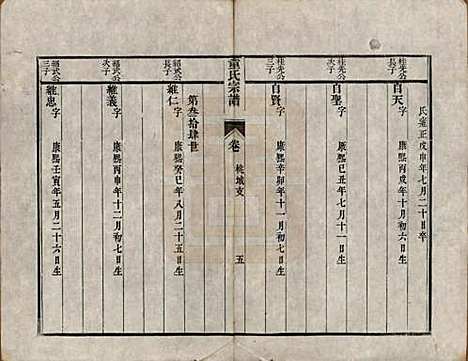 氏雍正戊申年七月二十日卒
桂先公
長子
自天 字
康熙丙戌年十月初六日生
桂先公
次子
自聖 字
康熙己丑年七月十一日生
桂先公
三子
自賢 字
康熙辛卯年十一月初七日生
童氏宗譜
卷
桃城支
五
第叁拾肆世
紹武公
長子
維仁 字
康熙癸巳年八月二十五日生
紹武公
次子
維義 字
康熙丙申年十二月初七日生
紹武公
三子
維忠 字
康熙壬寅年五月二十六日生